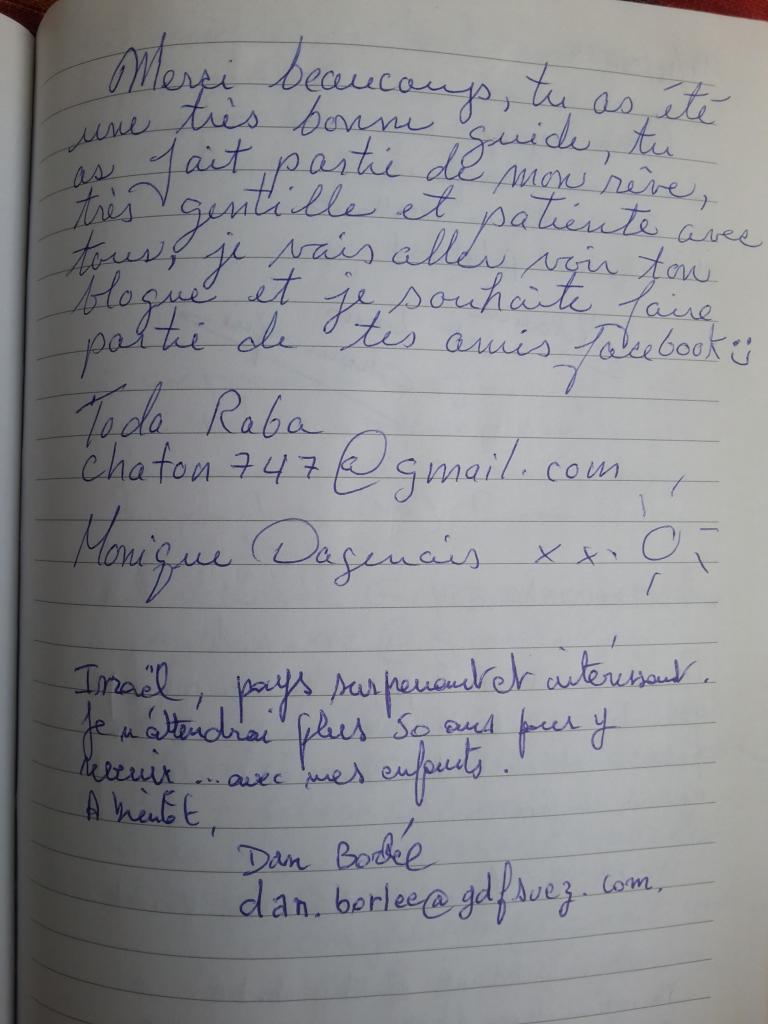 Merci beaucoup, tu as été
une très bonne guide, tu
as fait partie de mon rêve,
très gentille et patiente avec
tous, je vais aller voir ton
blogue et je souhaite faire
partie de tes amis facebook
Toda Raba
chaton747@gmail.com
Monique Dagenais xx
Israël, pays surprenant et intéressant.
Je n'attendrai plus 50 ans pour y
revenir ... avec mes enfants.
A bientôt,
Dan Borlée
dan.borlee@gdfsuez.com.